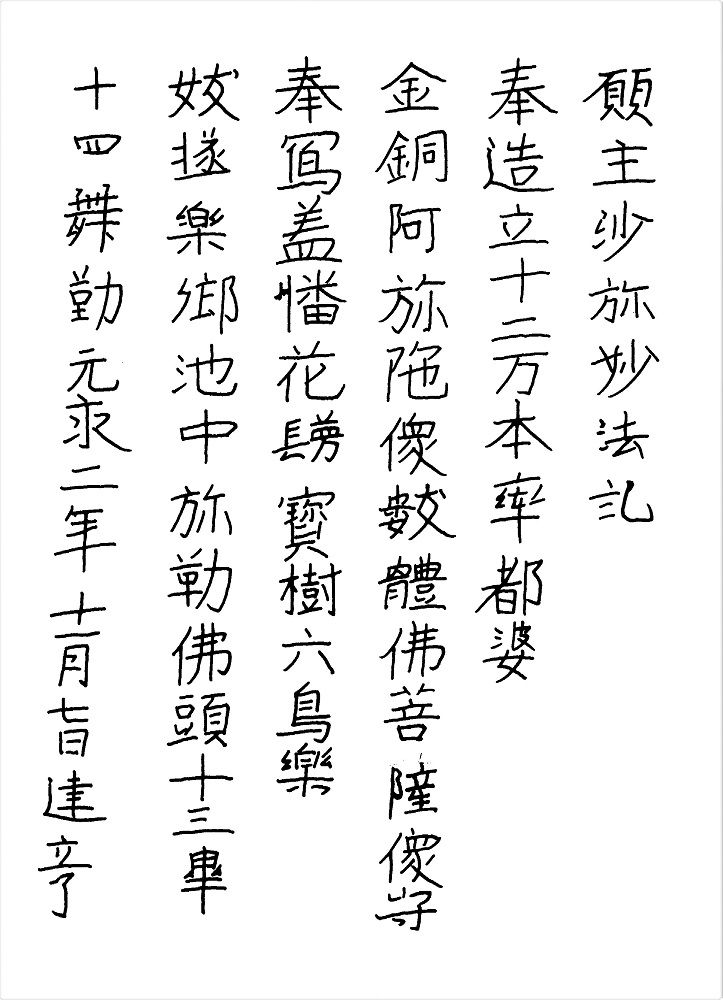 願主沙弥妙法記
奉造立十二万本率都婆
金銅阿弥陁像数體佛菩薩像等
奉寫盖幡花鬘寶樹六鳥樂
樂郷池中弥勒佛頭十三畢
十四舞勤元永二年十一月七日建立了